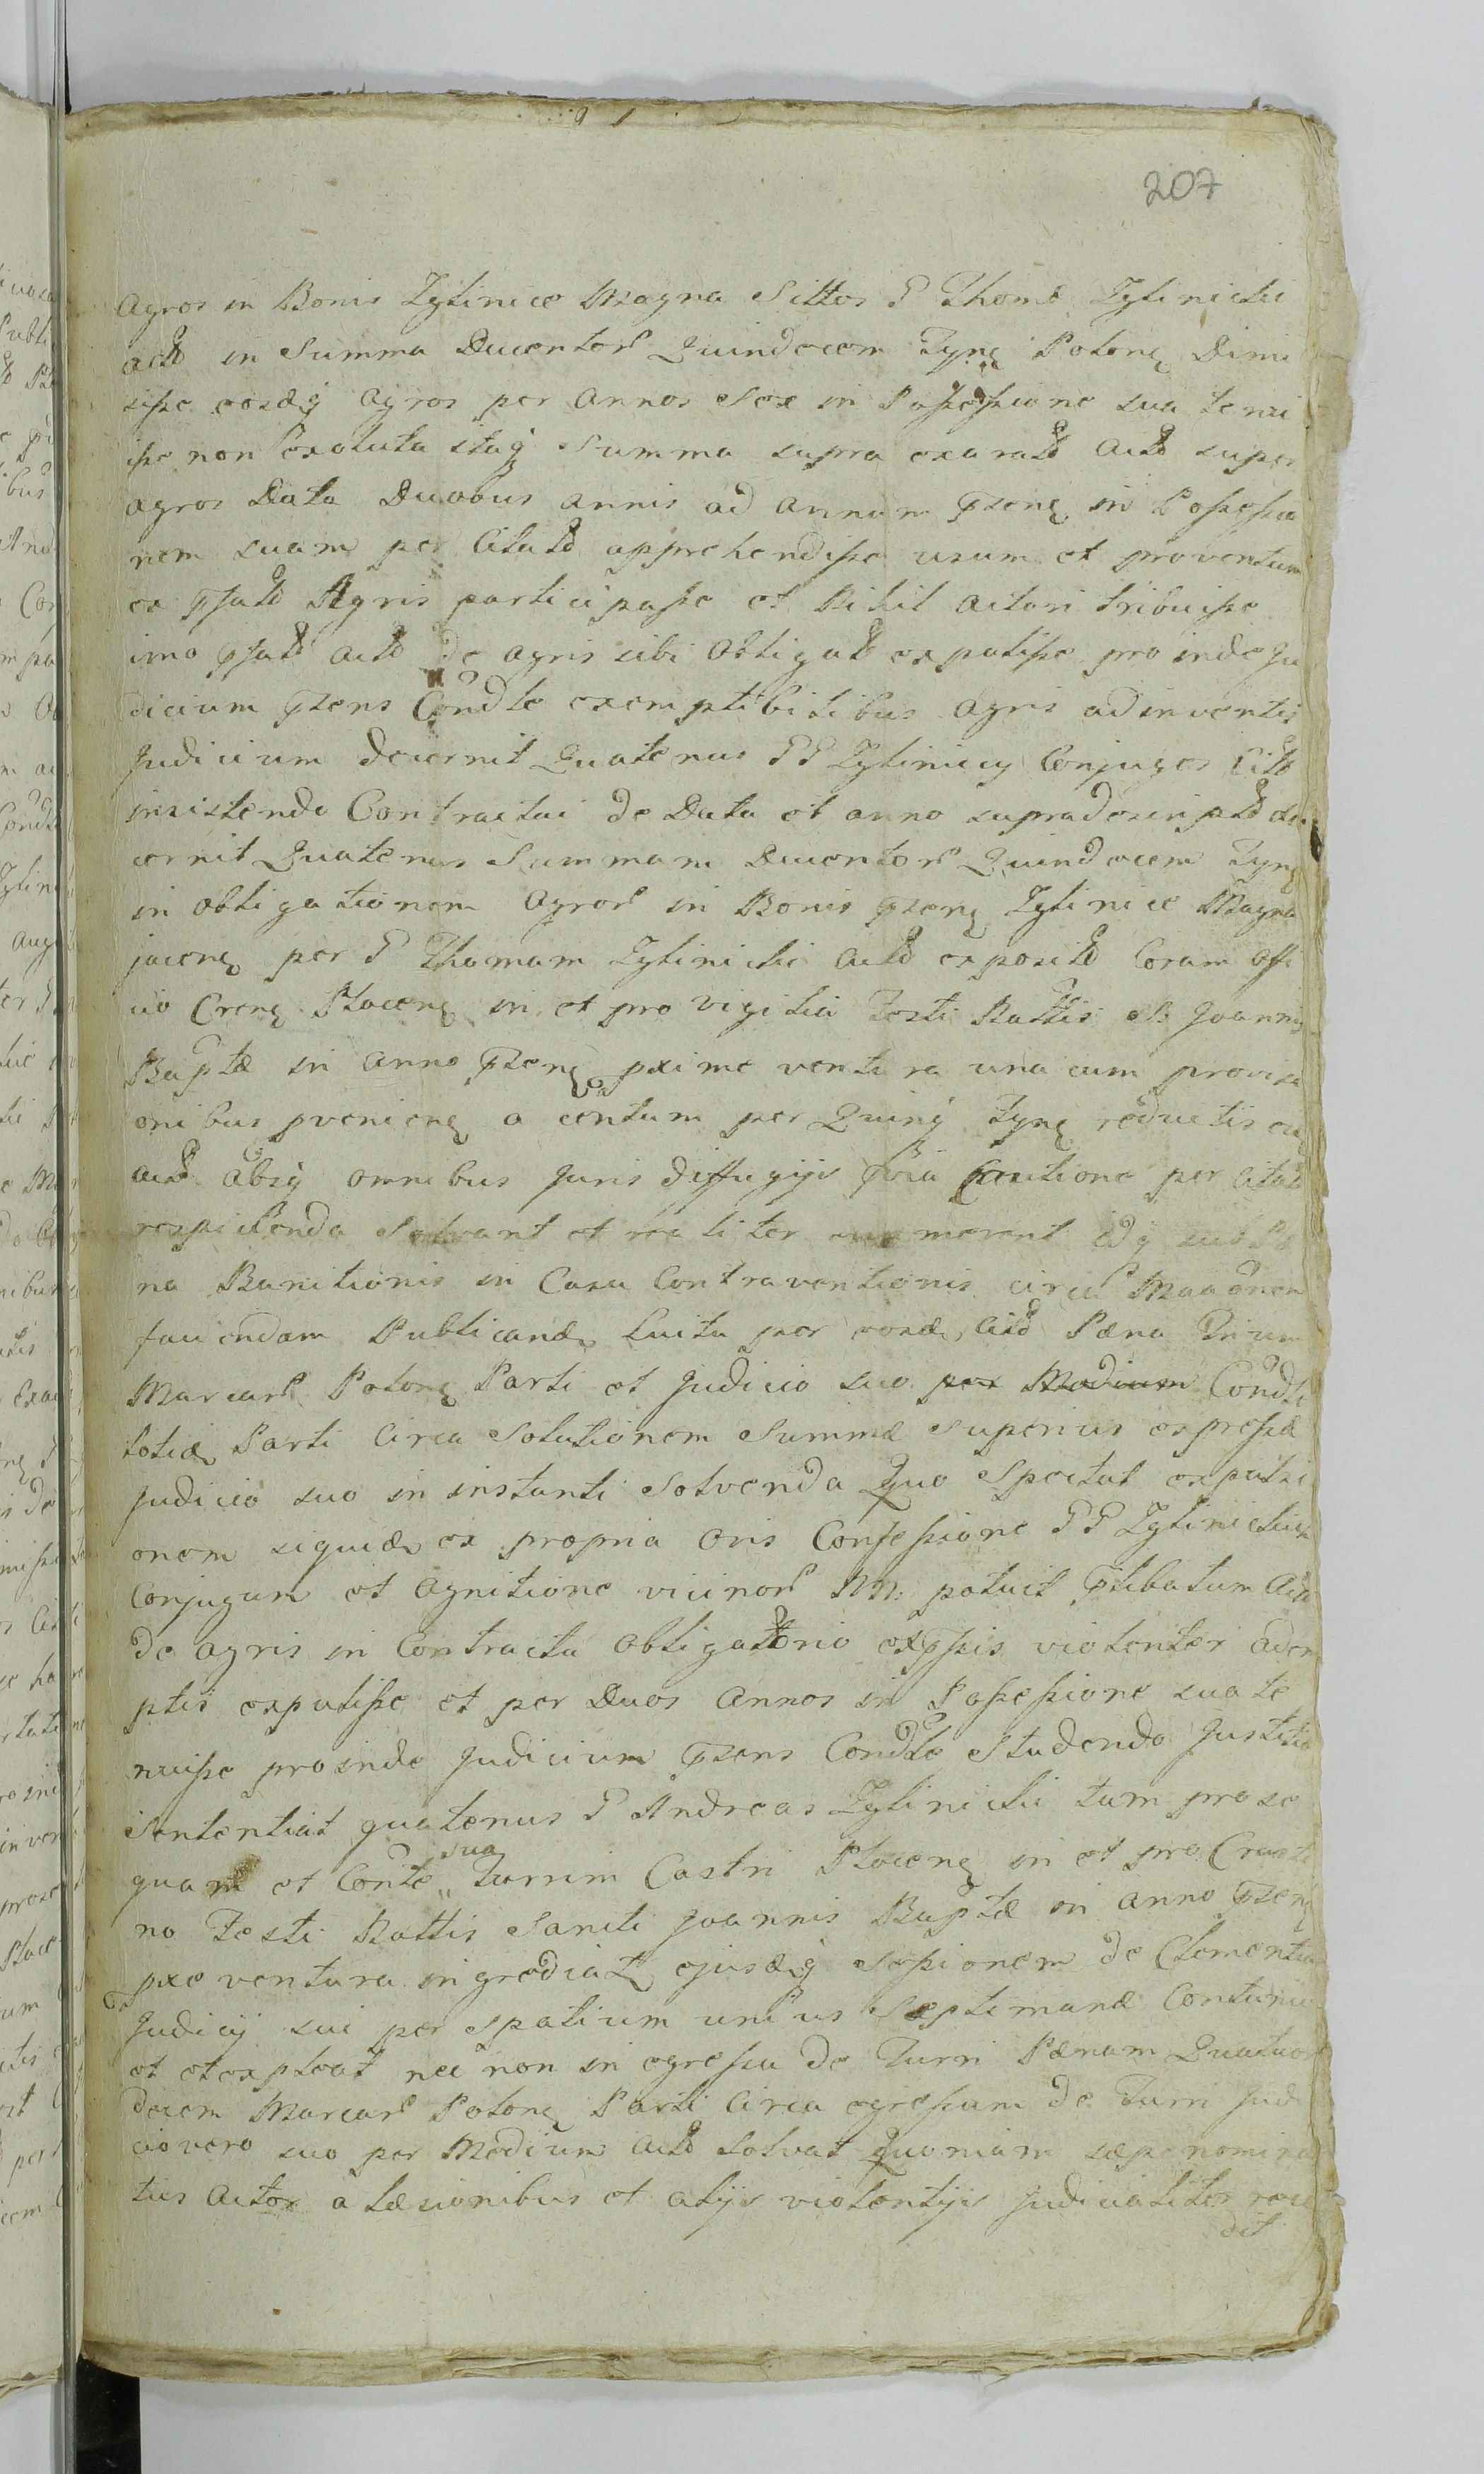 207
Agros in Bonis Zglinice Magna Sittos P Thomæ Zglinicki
actô in Summa Ducentorũ Quindecem Tynę Polonę Dimi
siße eosdęq́ Agros per Annos Sex in Poßeßione sua tenu
iße non Exoluta itaq́ Summa supra exaratô Actô super
agros Data Duobus annis ad annum pńsenę in Poßeßio
nem suam per Citatô apprehendiße usum et proventum
ex pńfatô Agris participaße et Nihil Actori tribuiße
imo pńfatô actô de agris sibi obligatô expuliße proinde Ju
dicium pńsens Condle exemptibilibus agris adinventis
Judicium decernit Quatenus PP Zgliniccy Conjuges Citô
insistendo Contractui de Data et anno supradescriptô de
cernit Quatenus Summam Ducentorũ Quindecem Tynę
in obligationem Agrorũ in Bonis pńsenę Zglinice Magna
jacenę per P Thomam Zglinicki Actô expositô Coram Offi
cio Crenę Plocenę in et pro vigilia Festi Nattis S. Joannis
Baptæ in Anno pńsenę pxime ventura una cum provisi
onibus pvenienę a centum per Quinq́ Tynę reductis
actô absq́ omnibus Juris diffugijs Cautione per Citatô
respicienda Solvant et realiter numerent idq́ sub Pæ
na Banitionis in Casu Contraventionis circa
faciendam Publicandę Luita per eosdę Citô Pæna Trium
Marcarũ Polonę Parti et Judicio suo per Medium Condli
totidę Parti Circa Solutionem Summæ Superius expreßæ
Judicio suo in instanti Solvenda Quo Spectat expulsi
onem siquidę ex propria Oris Confeßione PP Zglinickich
Conjugum et Agnitione vicinorũ NN. patuit pńlibatum Acto
de agris in Contractu Obligatorio expßis violenter adem
ptis expuliße et per Duos Annos in Poßeßione sua te
nuiße proinde Judicium pńsens Condle Studendo Justitiæ
Sententiat quatenus P Andreas Zglinicki tum pro se
quam et Conte sua Turrim Castri Plocenę in et pro Crasti
no Festi Nattis Sancti Joannis Baptæ in Anno pńsenę
pxe ventura ingrediatę ejusdęq́ Seßionem de Clementia
Judicij sui per Spatium unius Septimanæ Continu
et et expleat nec non in egreßu de Turri Pænam Quatuor
decem Marcarũ Polonę Parti Circa egreßum de Turri Judi
cio vero suo per Medium Actô Solvat Quoniam sæpenomina
tus Actor a læsionibus et alijs violentijs Judicialiter rece
dit